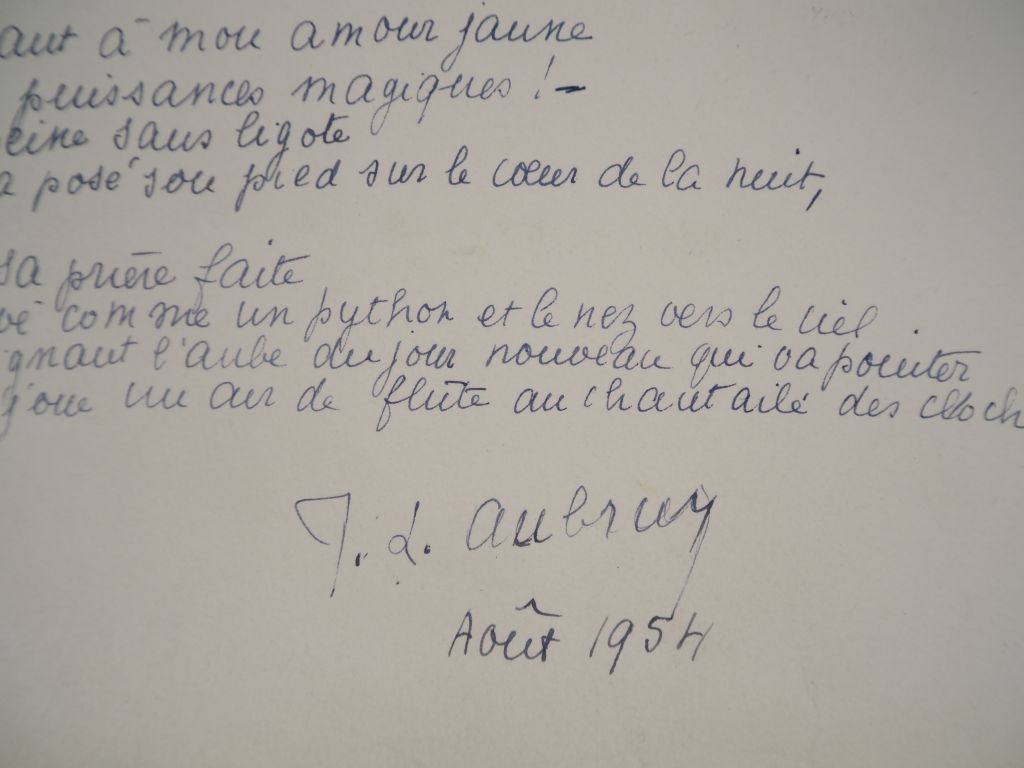 aut à mon amour jaune
puissances magiques ! -
eine sans ligote
a posé son pied sur le cœur de la nuit,
sa prière faite
vé comme un python et le nez vers le ciel.
ignant l'aube du jour nouveau qui va pointer
joue un air de flûte au chant ailé des cloch
J. L. Aubruy
Août 1954